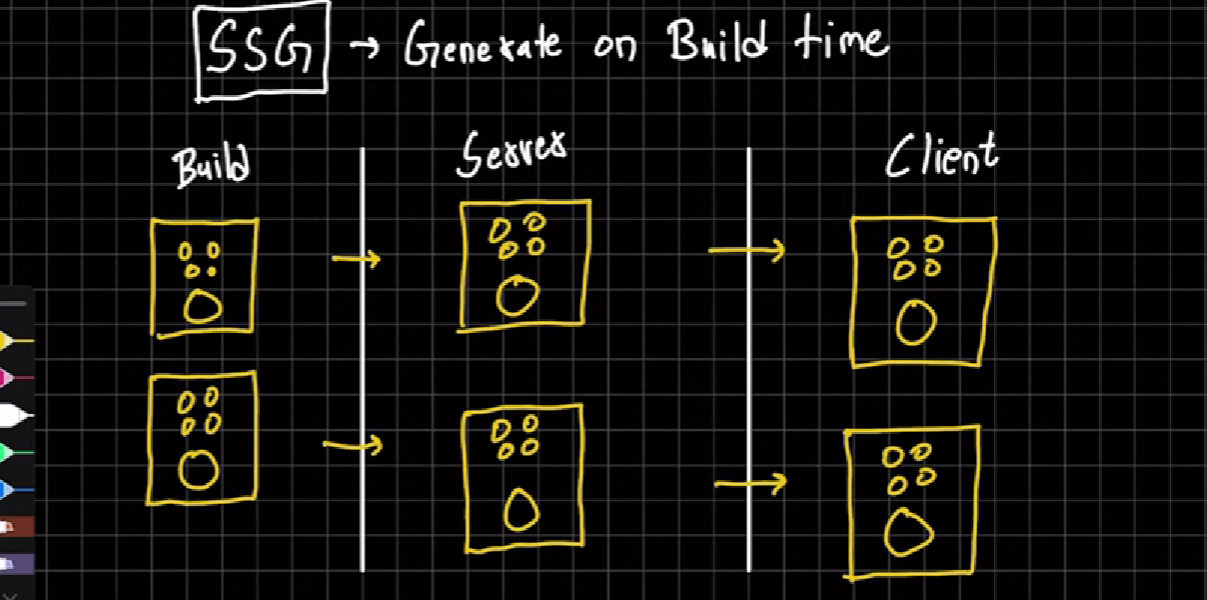 SSG → Generate on Build time
Build Server Client